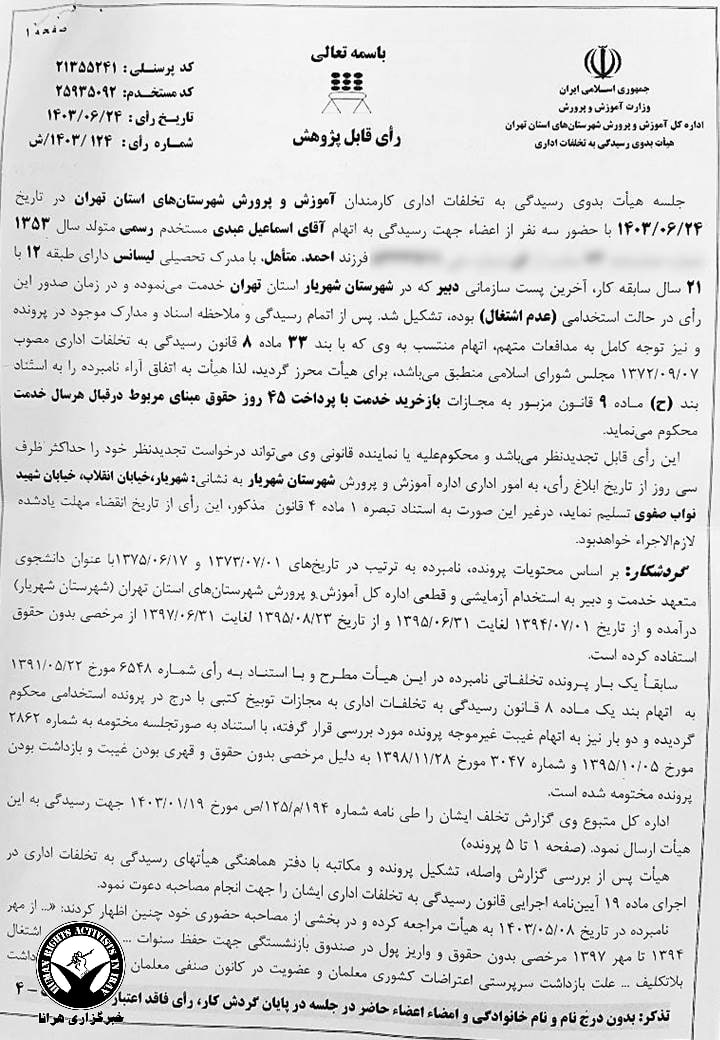 صفحه ۱
باسمه تعالی
رأی قابل پژوهش
جمهوری اسلامی ایران
وزارت آموزش و پرورش
اداره کل آموزش و پرورش شهرستان‌های استان تهران
هیأت بدوی رسیدگی به تخلفات اداری
کد پرسنلی: ۲۱۳۵۵۲۴۱
کد مستخدم: ۲۵۹۳۵۰۹۲
تاریخ رأی: ۱۴۰۳/۰۶/۲۴
شماره رأی: ۱۲۴ /۱۴۰۳/ش
جلسه هیأت بدوی رسیدگی به تخلفات اداری کارمندان آموزش و پرورش شهرستان‌های استان تهران در تاریخ
۱۴۰۳/۰۶/۲۴ با حضور سه نفر از اعضاء جهت رسیدگی به اتهام آقای اسماعیل عبدی مستخدم رسمی متولد سال ۱۳۵۳
فرزند احمد، متأهل، با مدرک تحصیلی لیسانس دارای طبقه ۱۲ با
۲۱ سال سابقه کار، آخرین پست سازمانی دبیر که در شهرستان شهریار استان تهران خدمت می‌نموده و در زمان صدور این
رأی در حالت استخدامی (عدم اشتغال) بوده، تشکیل شد. پس از اتمام رسیدگی و ملاحظه اسناد و مدارک موجود در پرونده
و نیز توجه کامل به مدافعات متهم، اتهام منتسب به وی که با بند ۳۳ ماده ۸ قانون رسیدگی به تخلفات اداری مصوب
۱۳۷۲/۰۹/۰۷ مجلس شورای اسلامی منطبق می‌باشد، برای هیأت محرز گردید، لذا هیأت به اتفاق آراء نامبرده را به استناد
بند (ح) ماده ۹ قانون مزبور به مجازات بازخرید خدمت با پرداخت ۴۵ روز حقوق مبنای مربوط درقبال هرسال خدمت
محکوم می‌نماید.
این رأی قابل تجدیدنظر می‌باشد و محکوم‌علیه یا نماینده قانونی وی می‌تواند درخواست تجدیدنظر خود را حداکثر ظرف
سی روز از تاریخ ابلاغ رأی، به امور اداری اداره آموزش و پرورش شهرستان شهریار به نشانی: شهریار،خیابان انقلاب، خیابان شهید
نواب صفوی تسلیم نماید، درغیر این صورت به استناد تبصره ۱ ماده ۴ قانون مذکور، این رأی از تاریخ انقضاء مهلت یادشده
لازم‌الاجراء خواهدبود.
گردشکار: بر اساس محتویات پرونده، نامبرده به ترتیب در تاریخ‌های ۱۳۷۳/۰۷/۰۱ و ۱۳۷۵/۰۶/۱۷با عنوان دانشجوی
متعهد خدمت و دبیر به استخدام آزمایشی و قطعی اداره کل آموزش و پرورش شهرستان‌های استان تهران (شهرستان شهریار)
درآمده و از تاریخ ۱۳۹۴/۰۷/۰۱ لغایت ۱۳۹۵/۰۶/۳۱ و از تاریخ ۱۳۹۵/۰۸/۲۳ لغایت ۱۳۹۷/۰۶/۳۱ از مرخصی بدون حقوق
استفاده کرده است.
سابقاً یک بار پرونده تخلفاتی نامبرده در این هیأت مطرح و با استناد به رأی شماره ۶۵۴۸ مورخ ۱۳۹۱/۰۵/۲۲
به اتهام بند یک ماده ۸ قانون رسیدگی به تخلفات اداری به مجازات توبیخ کتبی با درج در پرونده استخدامی محکوم
گردیده و دو بار نیز به اتهام غیبت غیرموجه پرونده مورد بررسی قرار گرفته، با استناد به صورتجلسه مختومه به شماره ۲۸۶۲
مورخ ۱۳۹۵/۱۰/۰۵ و شماره ۳۰۴۷ مورخ ۱۳۹۸/۱۱/۲۸ به دلیل مرخصی بدون حقوق و قهری بودن غیبت و بازداشت بودن
پرونده مختومه شده است.
اداره کل متبوع وی گزارش تخلف ایشان را طی نامه شماره ۱۹۴/م/۱۲۵/ص مورخ ۱۴۰۳/۰۱/۱۹ جهت رسیدگی به این
هیأت ارسال نمود. (صفحه ۱ تا ۵ پرونده)
هیأت پس از بررسی گزارش واصله، تشکیل پرونده و مکاتبه با دفتر هماهنگی هیأتهای رسیدگی به تخلفات اداری در
اجرای ماده ۱۹ آیین‌نامه اجرایی قانون رسیدگی به تخلفات اداری ایشان را جهت انجام مصاحبه دعوت نمود.
نامبرده در تاریخ ۱۴۰۳/۰۵/۰۸ به هیأت مراجعه کرده و در بخشی از مصاحبه حضوری خود چنین اظهار کردند: «... از مهر
۱۳۹۴ تا مهر ۱۳۹۷ مرخصی بدون حقوق و واریز پول در صندوق بازنشستگی جهت حفظ سنوات ... اشتغال
بلاتکلیف ... علت بازداشت سرپرستی اعتراضات کشوری معلمان و عضویت در کانون صنفی معلمان
تذکر: بدون درج نام و نام خانوادگی و امضاء اعضاء حاضر در جلسه در پایان گردش کار، رأی فاقد اعتبار
HUMAN RIGHTS ACTIVISTS IN IRAN
خبرگزاری هرانا